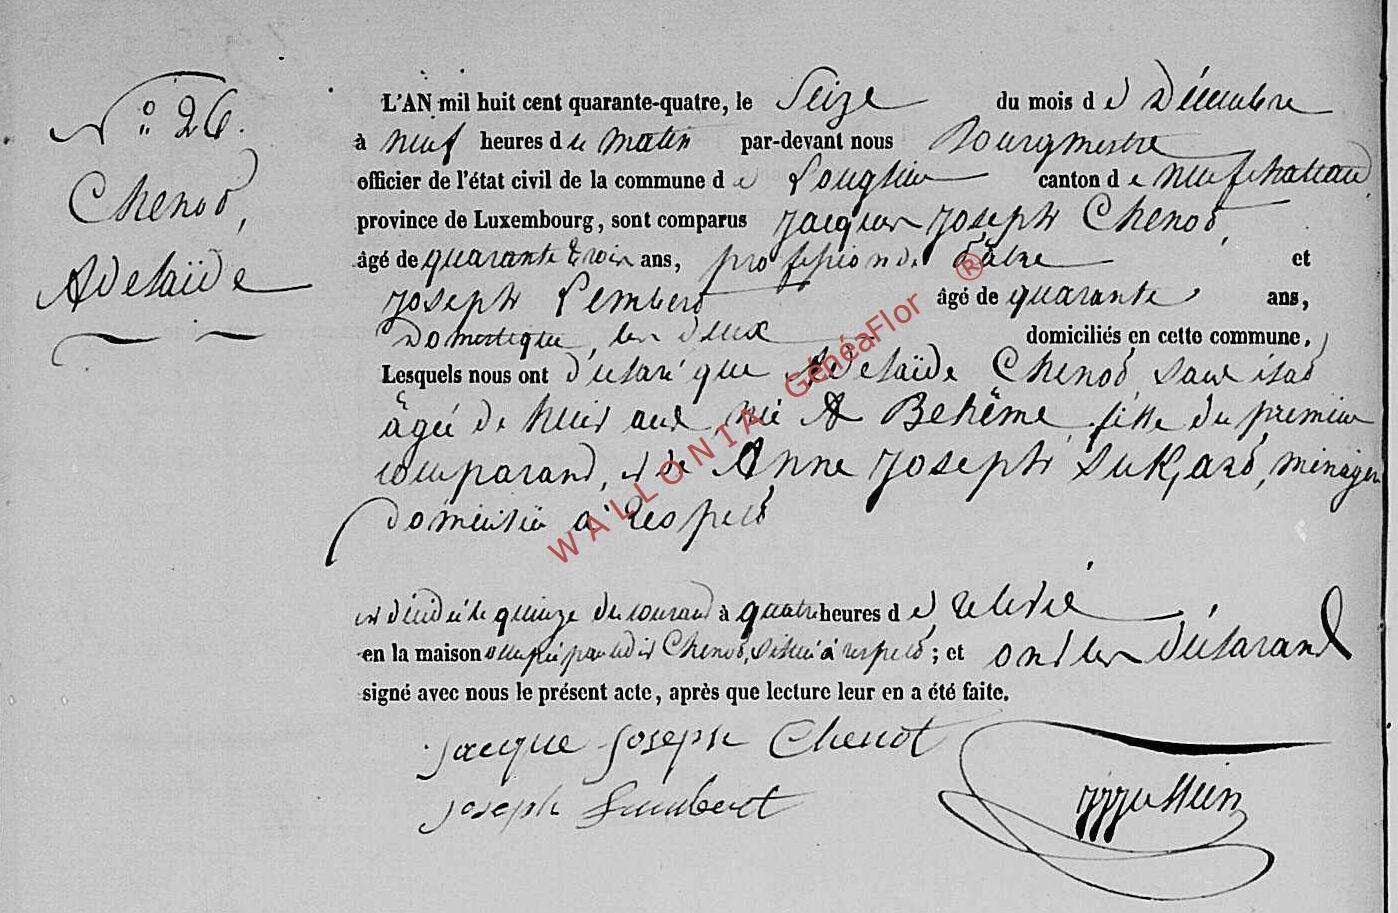 N° 26.
Chenot,
Adelaïde
L'AN mil huit cent quarante-quatre, le Seize du mois de Décembre
à neuf heures du matin par-devant nous Bourgmestre
officier de l'état civil de la commune de Longlier canton de neufchateau
province de Luxembourg, sont comparus Jacques Joseph Chenot,
âgé de quarante trois ans, profession de et
Joseph Lembert âgé de quarante ans,
Domestique, les deux domiciliés en cette commune.
Lesquels nous ont déclaré que Adelaïde Chenot, sans état
âgée de huit ans, née à Behême, fille du premier
comparant, et de Anne Joseph Sukard, ménagère
domiciliée à Respelt
est décédée le quinze du courant à quatre heures de relevée
en la maison occupée par ledit Chenot, située à respelt ; et ont les déclarants
signé avec nous le présent acte, après que lecture leur en a été faite.
Jacque Joseph Chenot
Joseph Lambert
WALLONIA GénéaFlor ®